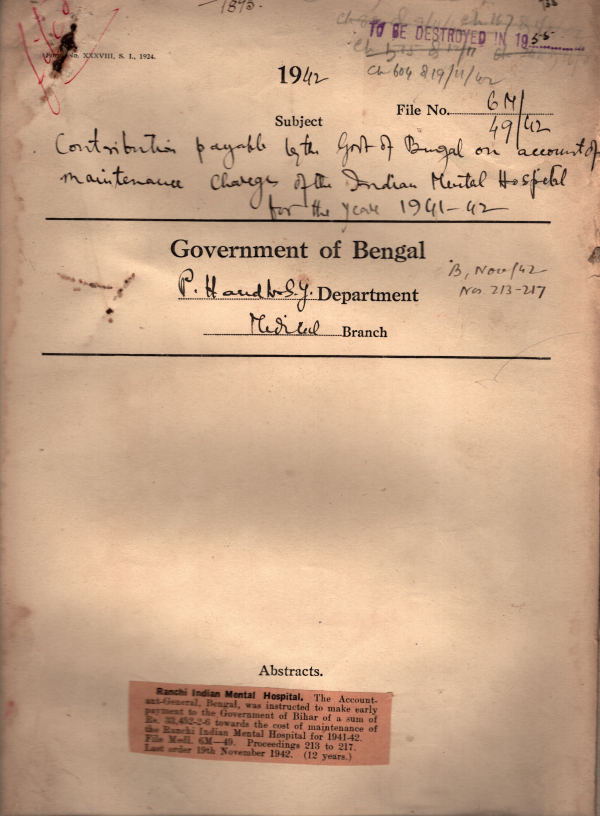 1873.
TO BE DESTROYED IN 1955
No. XXXVIII, S. I., 1924.
ch 604 & 19/11/42
1942
File No. 6M/
49/42
Subject
Contribution payable by the Govt of Bengal on account of
maintenance Charges of the Indian Mental Hospital
for the year 1941-42
Government of Bengal
B, Nov/42
Nos. 213-217
P. H and L.S.G. Department
Medical Branch
Abstracts.
Ranchi Indian Mental Hospital. The Account-
ant-General, Bengal, was instructed to make early
payment to the Government of Bihar of a sum of
Rs. 33,492-2-6 towards the cost of maintenance of
the Ranchi Indian Mental Hospital for 1941-42.
File Medl. 6M—49. Proceedings 213 to 217.
Last order 19th November 1942. (12 years.)